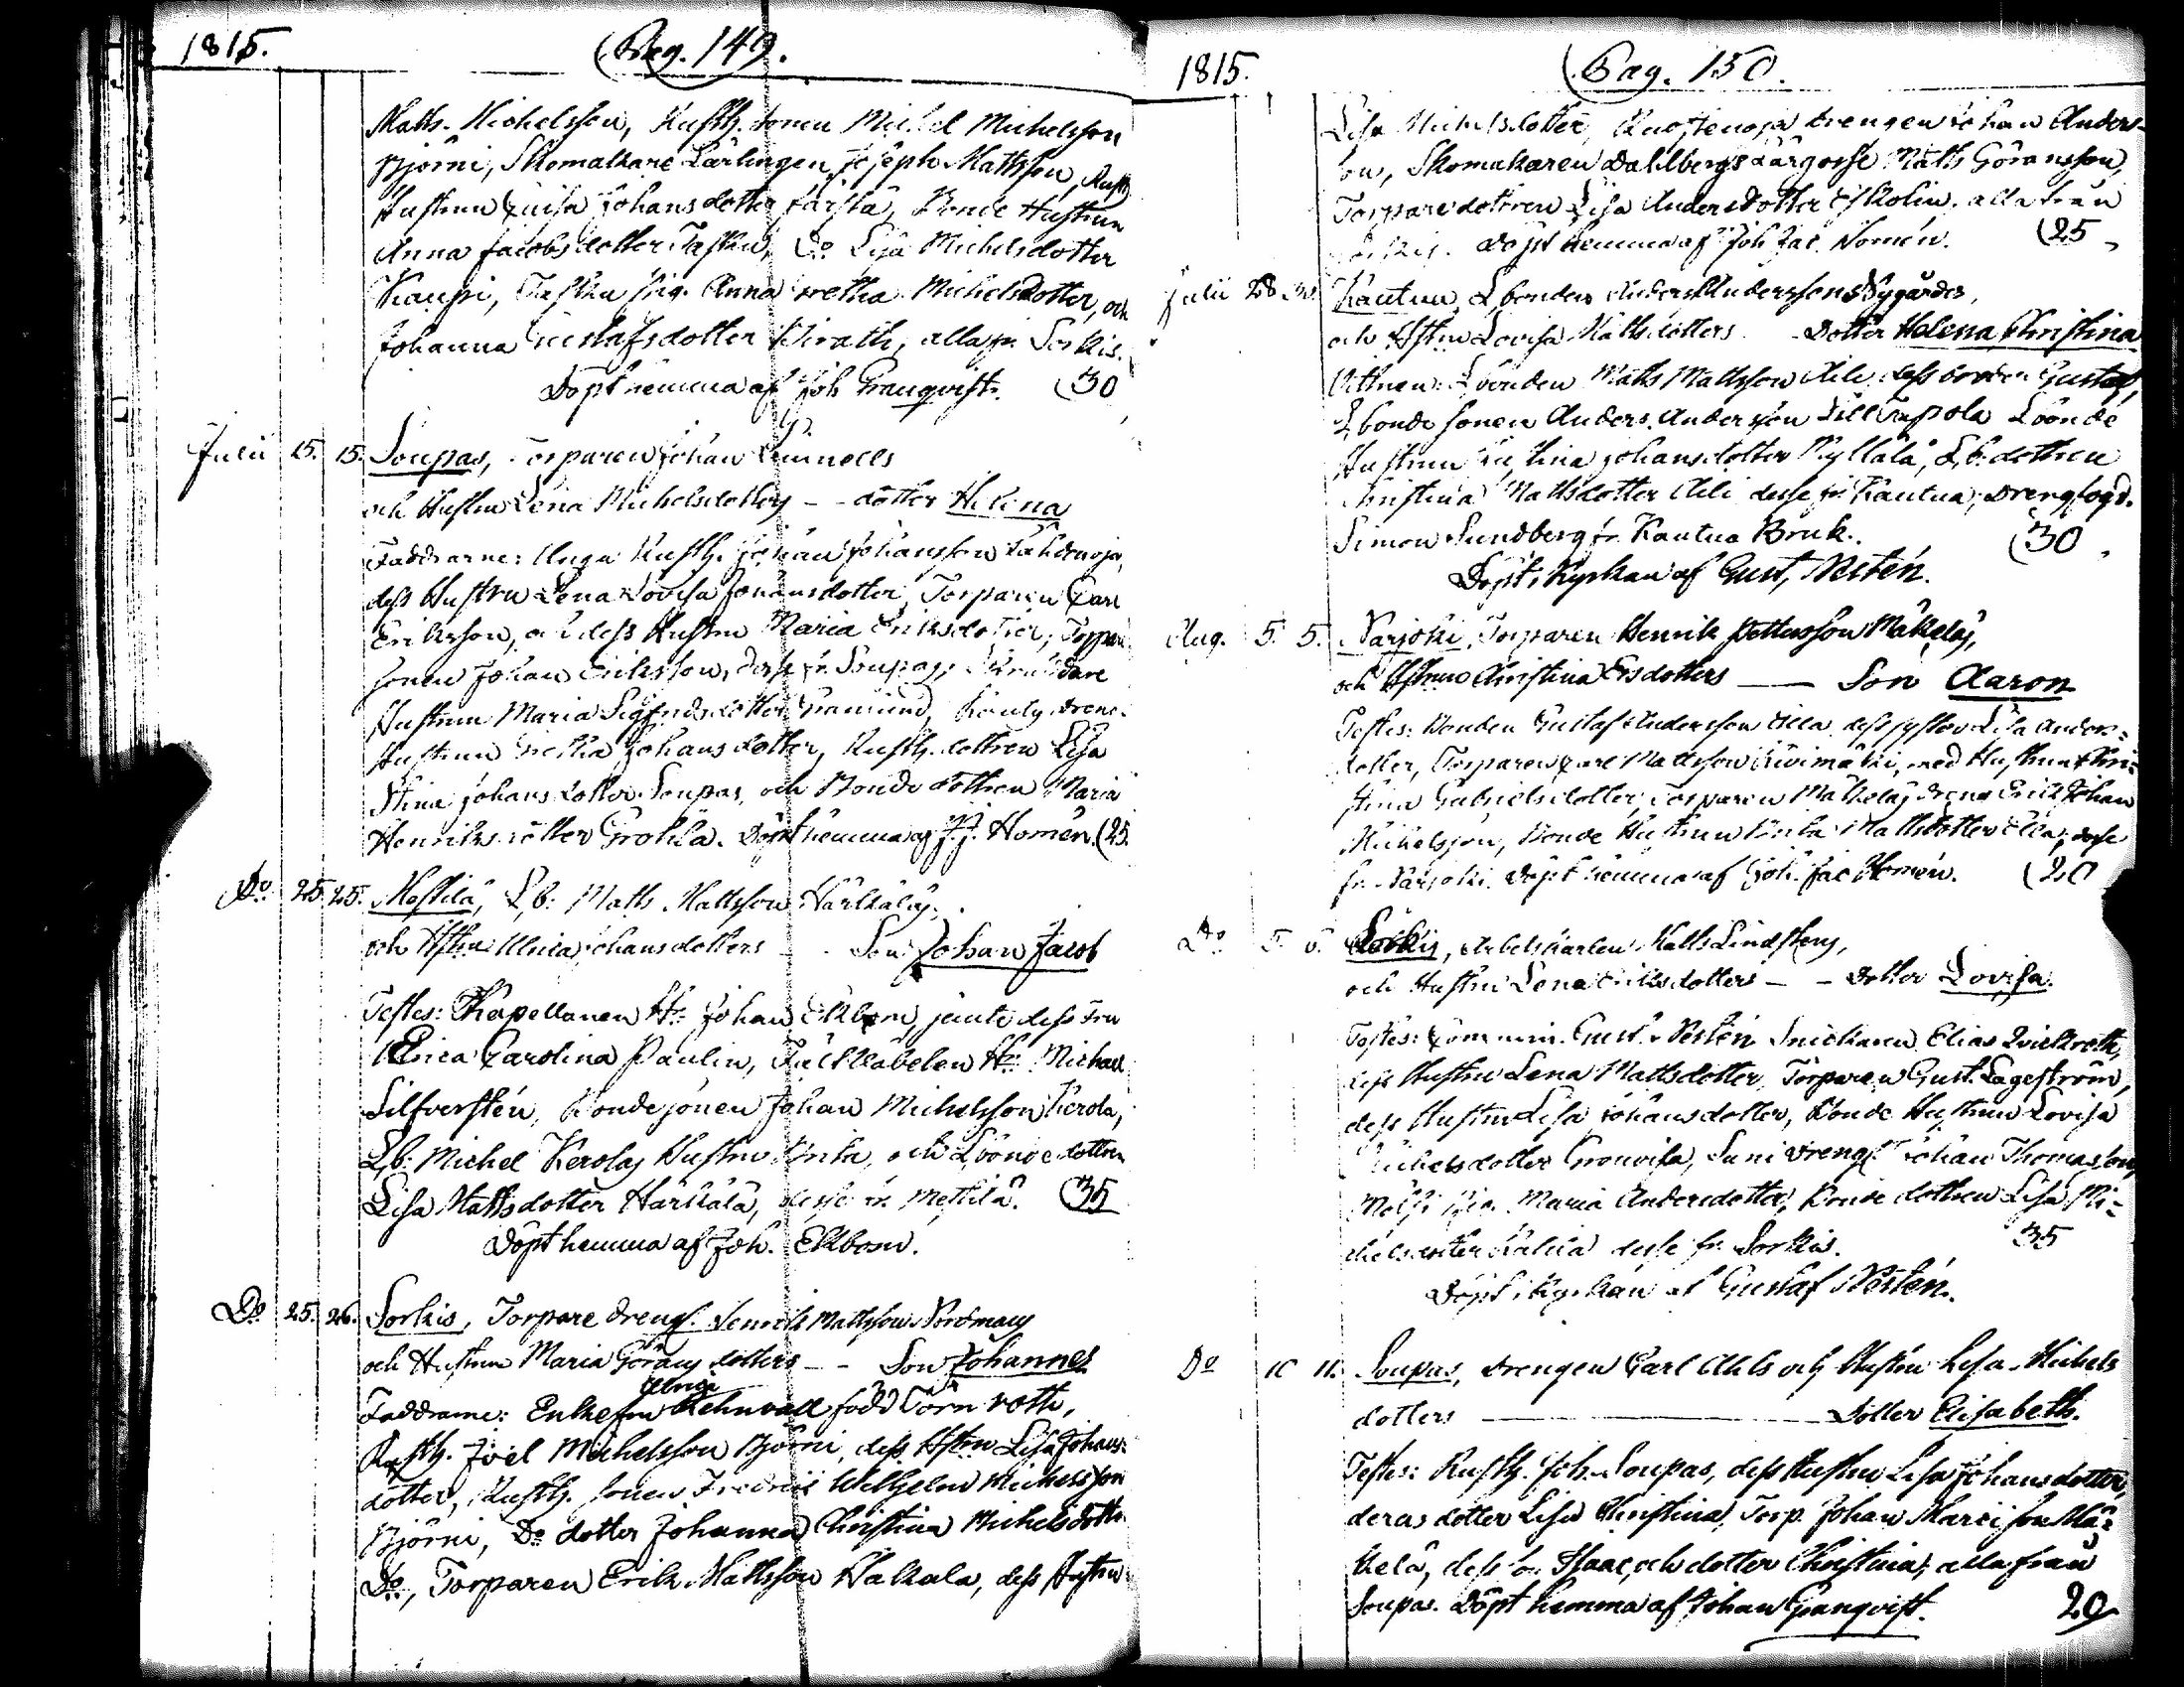 1815.
Pag. 149.
Matts Michelsson, Rusth. sonen Michel Michelsson
Björni, Skomakare Lärlingen Joseph Mattsson, Rusth.
Hustrun Lovisa Johansdotter Bonde Hustrun
Anna Jacobsdotter Do Lisa Michelsdotter
Kaupi, Pig. Anna Michelsdotter, och
Johanna Gustafsdotter alla fr. Sorkis.
Döpt hemma af Joh Granqvist. (30
Julii 15. 15. Soupas, Torparen Johan
och Hustru Lena Michelsdotters - - dotter Helena
Faddrarne: Unga Rusth. Johan Johansson
dess Hustru Lena Lovisa Johansdotter, Torparen Carl
Eriksson, och dess Hustru Maria Eriksdotter, Torpare
sonen Johan Eriksson, desse fr. Soupas;
Hustrun Maria Sigfridsdotter
Hustrun Johansdotter, Rusth. dottren Lisa
Stina Johansdotter Soupas, och Bonde dottren Maria
Henriksdotter Grokkla. Döpt hemma af J. J. Homén. (25.
Do 25. 25. Mestilä, L,b: Matts Mattsson Härkäläs,
och Hstru Ulrica Johansdotters - Son Johan Jacob
Testes: Kapellanen Hr. Johan Ekbom, jemte dess Fru
Ulrica Carolina Paulin, Hr. Michael
Silfverstén, Bondesonen Johan Michelsson Kerola,
L,b: Michel Kerolas Hustru och L,bonde dottren
Lisa Mattsdotter Härkälä, desse fr. Mestilä. (35
Döpt hemma af Joh. Ekbom.
Do 25. 26. Sorkis, Torpare dreng. Henrik Mattsson Nordmans
och Hustrun Maria Görans dotters - - Son Johannes
Ulrica
Faddrarne: Enkefru Rehnvall född Törnroth,
Rusth. Joel Michelsson Björni, dess Hstru Lisa Johans-
dotter, Rusth. sonen Fredric Wilhelm Michelsson
Björni, Do dotter Johanna Christina Michelsdotter
Do, Torparen Erik Mattsson Hakala, dess Hustru
1815.
Pag. 150.
Lisa Michelsdotter, drengen Johan Anders-
son, Skomakaren Dahlbergs Lärgosse Matts Göransson,
Torpare dottren Lisa Andersdotter Eskolin. alla från
Sorkis. Döpt hemma af Joh Jac. Homén. (25
Julii 28 Kautua, L,bonden Anders Anderssons Nygårds,
och Hstru Lovisa Mattsdotters - Dotter Helena Christina
Vittnen: L,bonden Matts Mattsson dess broder Gustaf,
L,bonde sonen Anders Andersson Lill Tapola L,bonde
Hustrun Johansdotter Kyllälä, L,b: dottren
Christina Mattsdotter desse fr. Kautua; drengfogd.
Simon Sundberg fr. Kautua Bruk. (30
Döpt i Kyrkan af Gust, Nestén.
Aug. 5. 5. Narjoki, Torparen Henrik Pettersson Mäkeläs,
och Hstrun Christina Ersdotters — Son Aaron
Testes: Bonden Gustaf Andersson dess syster Lisa Anders-
dotter, Torparen Carl Mattsson Kivimäki, med Hustrun Chri-
stina Gabrielsdotter, Torparen Mäkeläs dreng Erik Johan
Michelsson, Bonde Hustrun Mattsdotter desse
fr. Narjoki. Döpt hemma af Joh. Jac Homén. (20
Do 5. 6. Sorkis, Arbetskarlen Matts Lindstens,
och Hustru Lena Eriksdotters - - Dotter Lovisa.
Testes: Commin. Gust. Nestén Snickaren Elias Qvickroth,
dess Hustru Lena Mattsdotter Torparen Gust. Lageström,
dess Hustru Lisa Johansdotter, Bonde Hustrun Lovisa
Michelsdotter Suni dreng. Johan Thomasson,
Pig. Maria Andersdotter, Bonde dottren Lisa Mi-
chelsdotter desse fr. Sorkis. 35
Döpt i Kyrkan af Gustaf Nestén.
Do 10 11. Soupas, drengen Carl Ahls och Hustru Lisa Michels
dotters — Dotter Elisabeth.
Testes: Rusth. Joh. Soupas, dess Hustru Lisa Johansdotter,
deras dotter Lisa Christina, Torp. Johan Marcisson Mä-
kelä, dess son Isaac, och dotter Christina, alla från
Soupas. Döpt hemma af Johan Granqvist. 20